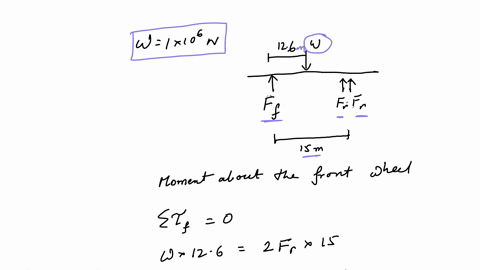 W = 1×10⁶ N
12.6m W
F_f F_r F_r
15m
Moment about the front wheel
Στ_f = 0
W×12.6 = 2F_r × 15